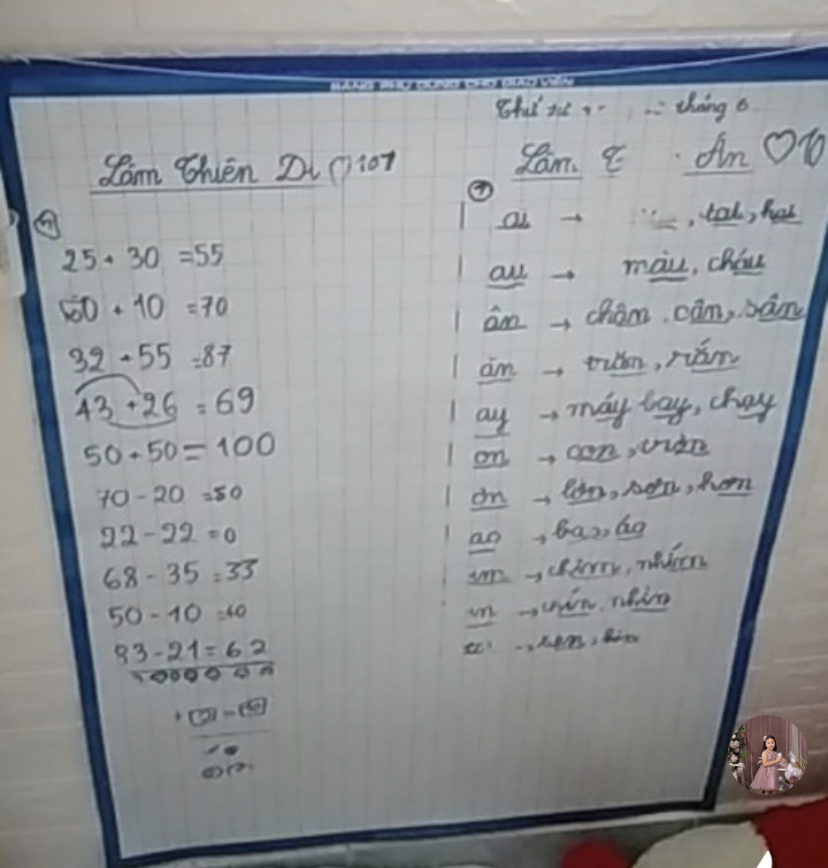 BẢNG PHỤ DÙNG CHO GIÁO VIÊN
Thứ tư tháng 6
Lâm Thiên Di 10t
25 + 30 = 55
60 + 10 = 70
32 + 55 = 87
43 + 26 = 69
50 + 50 = 100
70 - 20 = 50
22 - 22 = 0
68 - 35 = 33
50 - 10 = 40
83 - 21 = 62
Lâm Ân
ai → , tai, hai
au → màu, cháu
ân → chậm, cân, sân
ăn → trăn, rắn
ay → máy bay, chạy
on → con, tròn
ơn → lớn, sơn, hơn
ao → bao, áo
im → chim, nhím
in → chín, nhìn